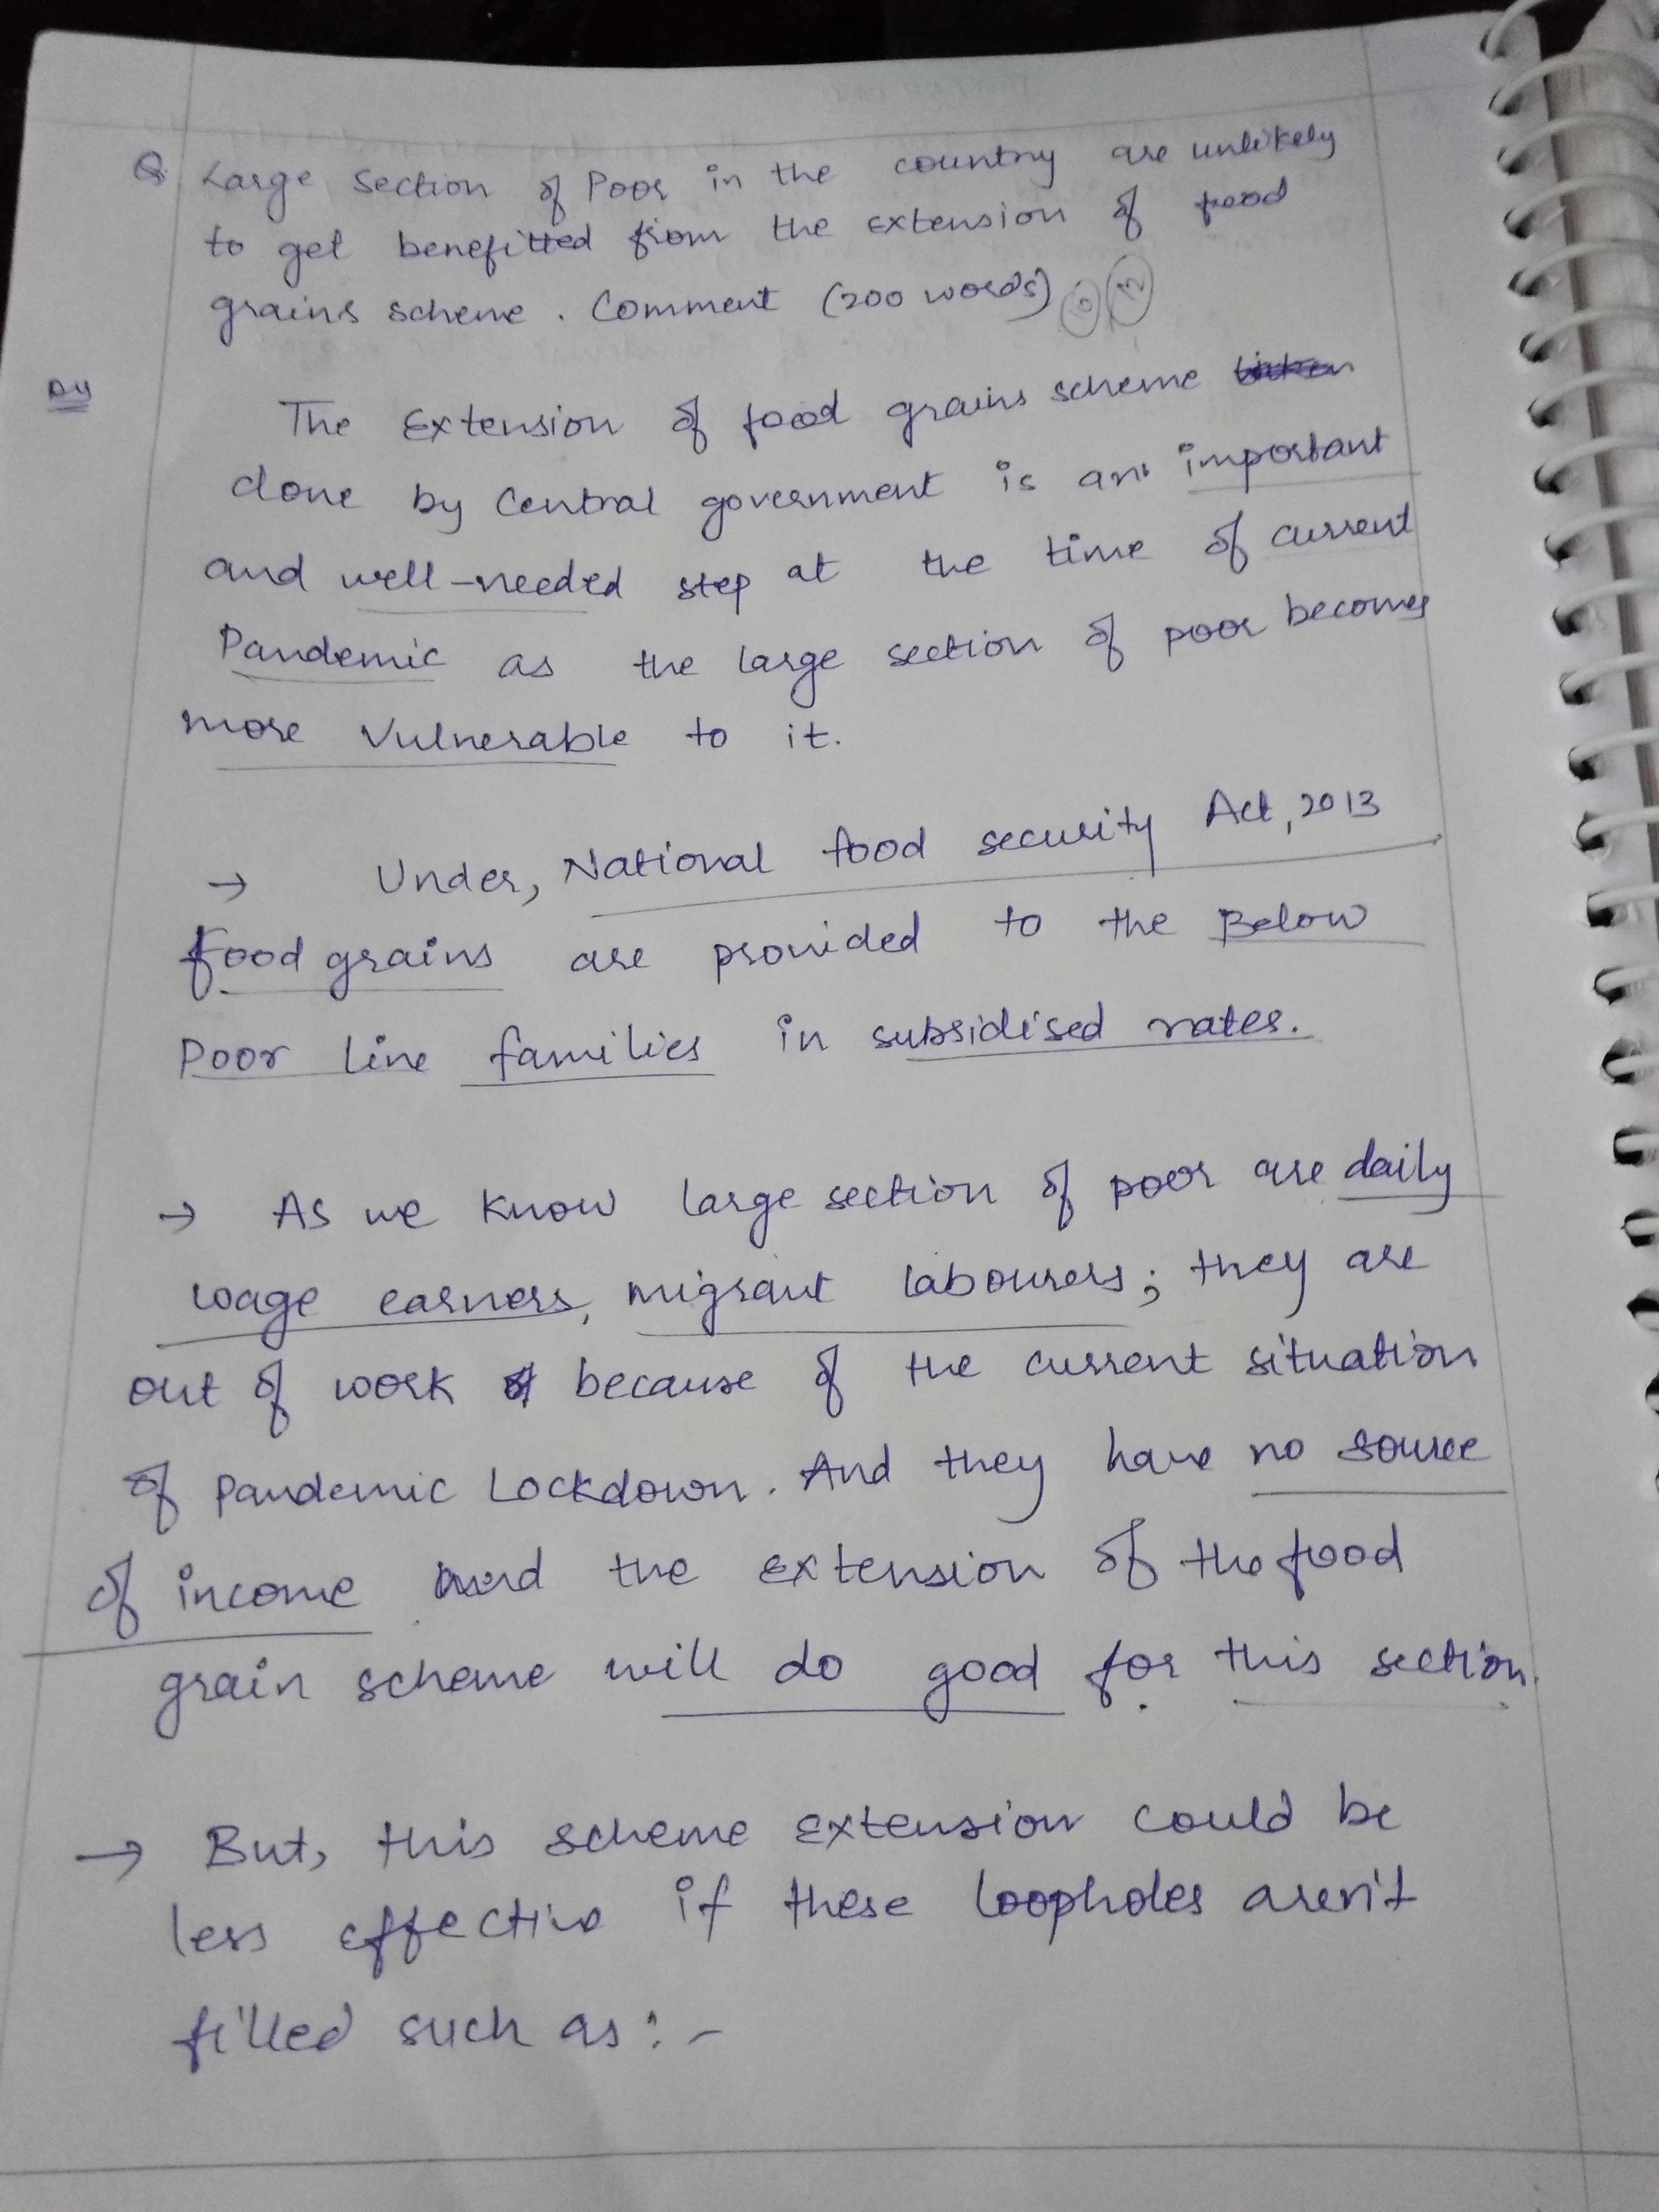 Q Large Section of Poor in the country are unlikely
to get benefitted from the extension of food
grains scheme. Comment (200 words) 10 12
The Extension of food grains scheme
done by Central government is an important
and well-needed step at the time of current
Pandemic as the large section of poor becomes
more Vulnerable to it.
→ Under, National food security Act, 2013
food grains are provided to the Below
Poor line families in subsidised rates.
→ As we know large section of poor are daily
wage earners, migrant labourers; they are
out of work because of the current situation
of Pandemic Lockdown. And they have no source
of income and the extension of the food
grain scheme will do good for this section.
→ But, this scheme extension could be
less effective if these loopholes aren't
filled such as :-